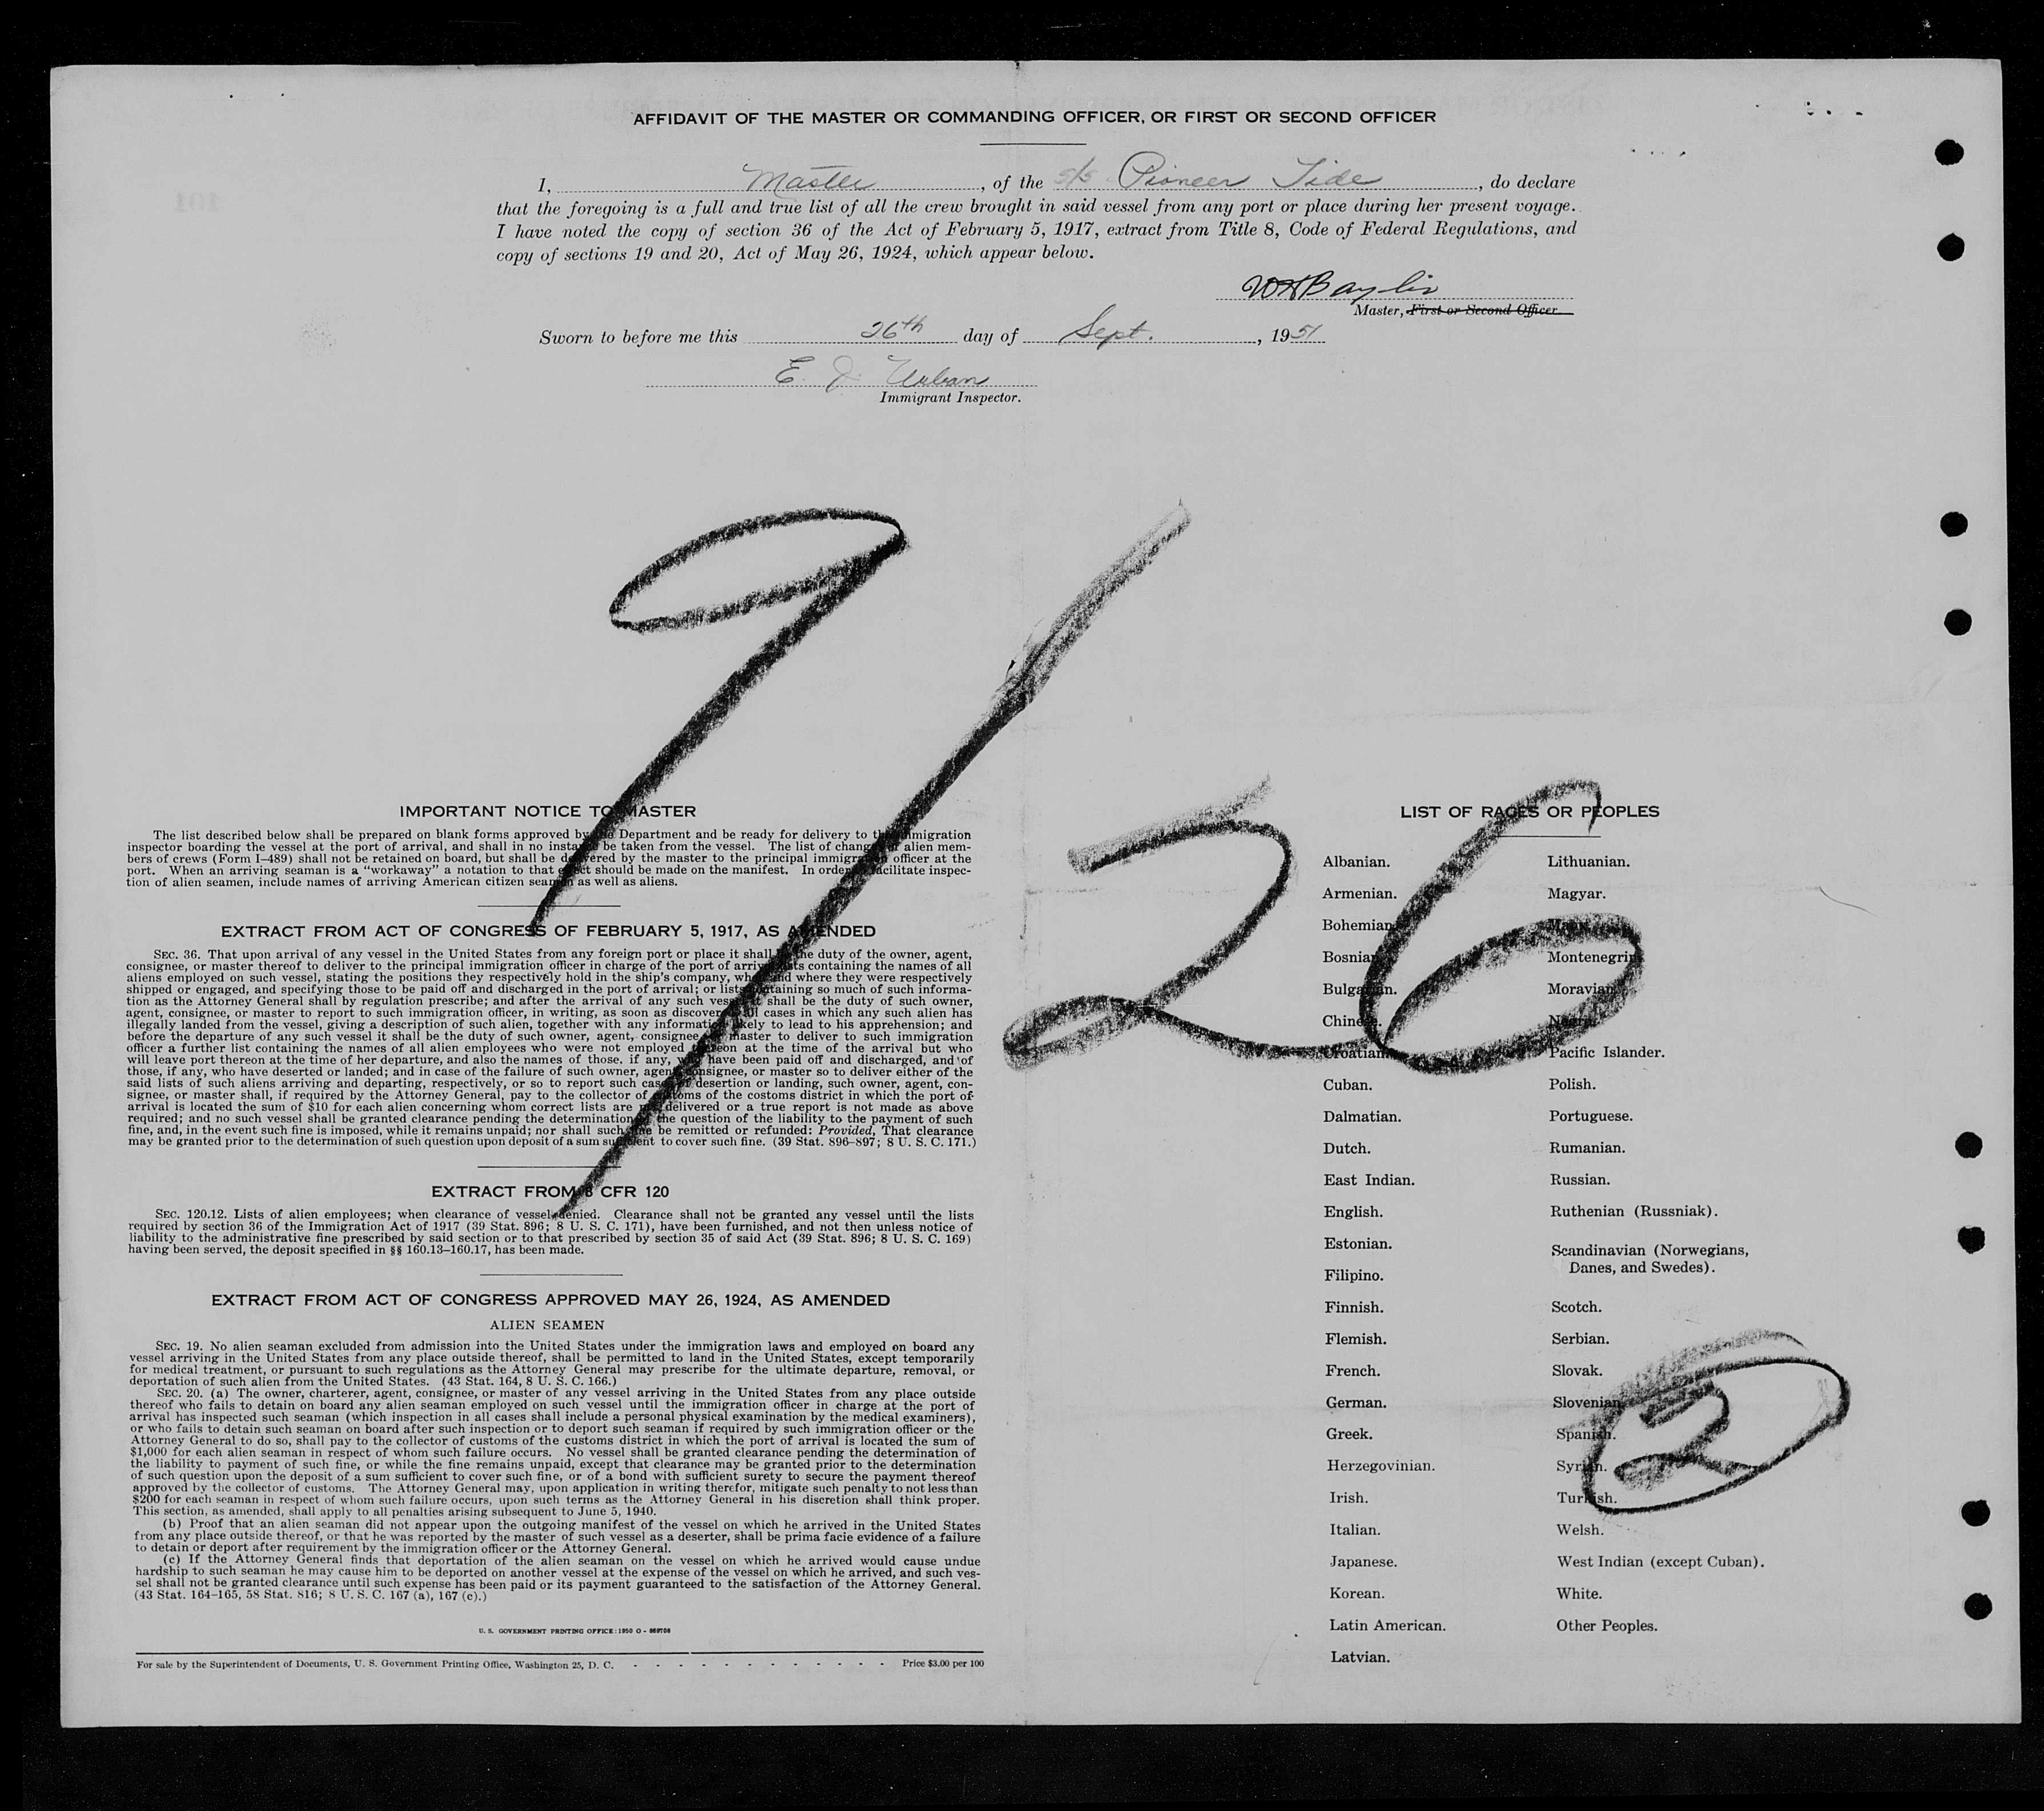 AFFIDAVIT OF THE MASTER OR COMMANDING OFFICER, OR FIRST OR SECOND OFFICER
I, Master, of the S/S Pioneer Tide, do declare
that the foregoing is a full and true list of all the crew brought in said vessel from any port or place during her present voyage.
I have noted the copy of section 36 of the Act of February 5, 1917, extract from Title 8, Code of Federal Regulations, and
copy of sections 19 and 20, Act of May 26, 1924, which appear below.
Master, First or Second Officer.
Sworn to before me this 26th day of Sept., 1951
E. J. Urban
Immigrant Inspector.
9/26
IMPORTANT NOTICE TO MASTER
The list described below shall be prepared on blank forms approved by the Department and be ready for delivery to the immigration
inspector boarding the vessel at the port of arrival, and shall in no instance be taken from the vessel. The list of changes of alien mem-
bers of crews (Form I–489) shall not be retained on board, but shall be delivered by the master to the principal immigration officer at the
port. When an arriving seaman is a "workaway" a notation to that effect should be made on the manifest. In order to facilitate inspec-
tion of alien seamen, include names of arriving American citizen seamen as well as aliens.
EXTRACT FROM ACT OF CONGRESS OF FEBRUARY 5, 1917, AS AMENDED
SEC. 36. That upon arrival of any vessel in the United States from any foreign port or place it shall be the duty of the owner, agent,
consignee, or master thereof to deliver to the principal immigration officer in charge of the port of arrival lists containing the names of all
aliens employed on such vessel, stating the positions they respectively hold in the ship's company, when and where they were respectively
shipped or engaged, and specifying those to be paid off and discharged in the port of arrival; or lists containing so much of such informa-
tion as the Attorney General shall by regulation prescribe; and after the arrival of any such vessel it shall be the duty of such owner,
agent, consignee, or master to report to such immigration officer, in writing, as soon as discovered, all cases in which any such alien has
illegally landed from the vessel, giving a description of such alien, together with any information likely to lead to his apprehension; and
before the departure of any such vessel it shall be the duty of such owner, agent, consignee, or master to deliver to such immigration
officer a further list containing the names of all alien employees who were not employed thereon at the time of the arrival but who
will leave port thereon at the time of her departure, and also the names of those, if any, who have been paid off and discharged, and of
those, if any, who have deserted or landed; and in case of the failure of such owner, agent, consignee, or master so to deliver either of the
said lists of such aliens arriving and departing, respectively, or so to report such cases of desertion or landing, such owner, agent, con-
signee, or master shall, if required by the Attorney General, pay to the collector of customs of the costoms district in which the port of
arrival is located the sum of $10 for each alien concerning whom correct lists are not delivered or a true report is not made as above
required; and no such vessel shall be granted clearance pending the determination of the question of the liability to the payment of such
fine, and, in the event such fine is imposed, while it remains unpaid; nor shall such fine be remitted or refunded: Provided, That clearance
may be granted prior to the determination of such question upon deposit of a sum sufficient to cover such fine. (39 Stat. 896–897; 8 U. S. C. 171.)
EXTRACT FROM 8 CFR 120
SEC. 120.12. Lists of alien employees; when clearance of vessel denied. Clearance shall not be granted any vessel until the lists
required by section 36 of the Immigration Act of 1917 (39 Stat. 896; 8 U. S. C. 171), have been furnished, and not then unless notice of
liability to the administrative fine prescribed by said section or to that prescribed by section 35 of said Act (39 Stat. 896; 8 U. S. C. 169)
having been served, the deposit specified in §§ 160.13–160.17, has been made.
EXTRACT FROM ACT OF CONGRESS APPROVED MAY 26, 1924, AS AMENDED
ALIEN SEAMEN
SEC. 19. No alien seaman excluded from admission into the United States under the immigration laws and employed on board any
vessel arriving in the United States from any place outside thereof, shall be permitted to land in the United States, except temporarily
for medical treatment, or pursuant to such regulations as the Attorney General may prescribe for the ultimate departure, removal, or
deportation of such alien from the United States. (43 Stat. 164, 8 U. S. C. 166.)
SEC. 20. (a) The owner, charterer, agent, consignee, or master of any vessel arriving in the United States from any place outside
thereof who fails to detain on board any alien seaman employed on such vessel until the immigration officer in charge at the port of
arrival has inspected such seaman (which inspection in all cases shall include a personal physical examination by the medical examiners),
or who fails to detain such seaman on board after such inspection or to deport such seaman if required by such immigration officer or the
Attorney General to do so, shall pay to the collector of customs of the customs district in which the port of arrival is located the sum of
$1,000 for each alien seaman in respect of whom such failure occurs. No vessel shall be granted clearance pending the determination of
the liability to payment of such fine, or while the fine remains unpaid, except that clearance may be granted prior to the determination
of such question upon the deposit of a sum sufficient to cover such fine, or of a bond with sufficient surety to secure the payment thereof
approved by the collector of customs. The Attorney General may, upon application in writing therefor, mitigate such penalty to not less than
$200 for each seaman in respect of whom such failure occurs, upon such terms as the Attorney General in his discretion shall think proper.
This section, as amended, shall apply to all penalties arising subsequent to June 5, 1940.
(b) Proof that an alien seaman did not appear upon the outgoing manifest of the vessel on which he arrived in the United States
from any place outside thereof, or that he was reported by the master of such vessel as a deserter, shall be prima facie evidence of a failure
to detain or deport after requirement by the immigration officer or the Attorney General.
(c) If the Attorney General finds that deportation of the alien seaman on the vessel on which he arrived would cause undue
hardship to such seaman he may cause him to be deported on another vessel at the expense of the vessel on which he arrived, and such ves-
sel shall not be granted clearance until such expense has been paid or its payment guaranteed to the satisfaction of the Attorney General.
(43 Stat. 164–165, 58 Stat. 816; 8 U. S. C. 167 (a), 167 (c).)
U. S. GOVERNMENT PRINTING OFFICE: 1950 O
For sale by the Superintendent of Documents, U. S. Government Printing Office, Washington 25, D. C. - - - - - - - - - - - - Price $3.00 per 100
LIST OF RACES OR PEOPLES
Albanian.
Armenian.
Bohemian.
Bosnian.
Bulgarian.
Chinese.
Croatian.
Cuban.
Dalmatian.
Dutch.
East Indian.
English.
Estonian.
Filipino.
Finnish.
Flemish.
French.
German.
Greek.
Herzegovinian.
Irish.
Italian.
Japanese.
Korean.
Latin American.
Latvian.
Lithuanian.
Magyar.
Manx.
Montenegrin.
Moravian.
Negro.
Pacific Islander.
Polish.
Portuguese.
Rumanian.
Russian.
Ruthenian (Russniak).
Scandinavian (Norwegians,
Danes, and Swedes).
Scotch.
Serbian.
Slovak.
Slovenian.
Spanish.
Syrian.
Turkish.
Welsh.
West Indian (except Cuban).
White.
Other Peoples.
2